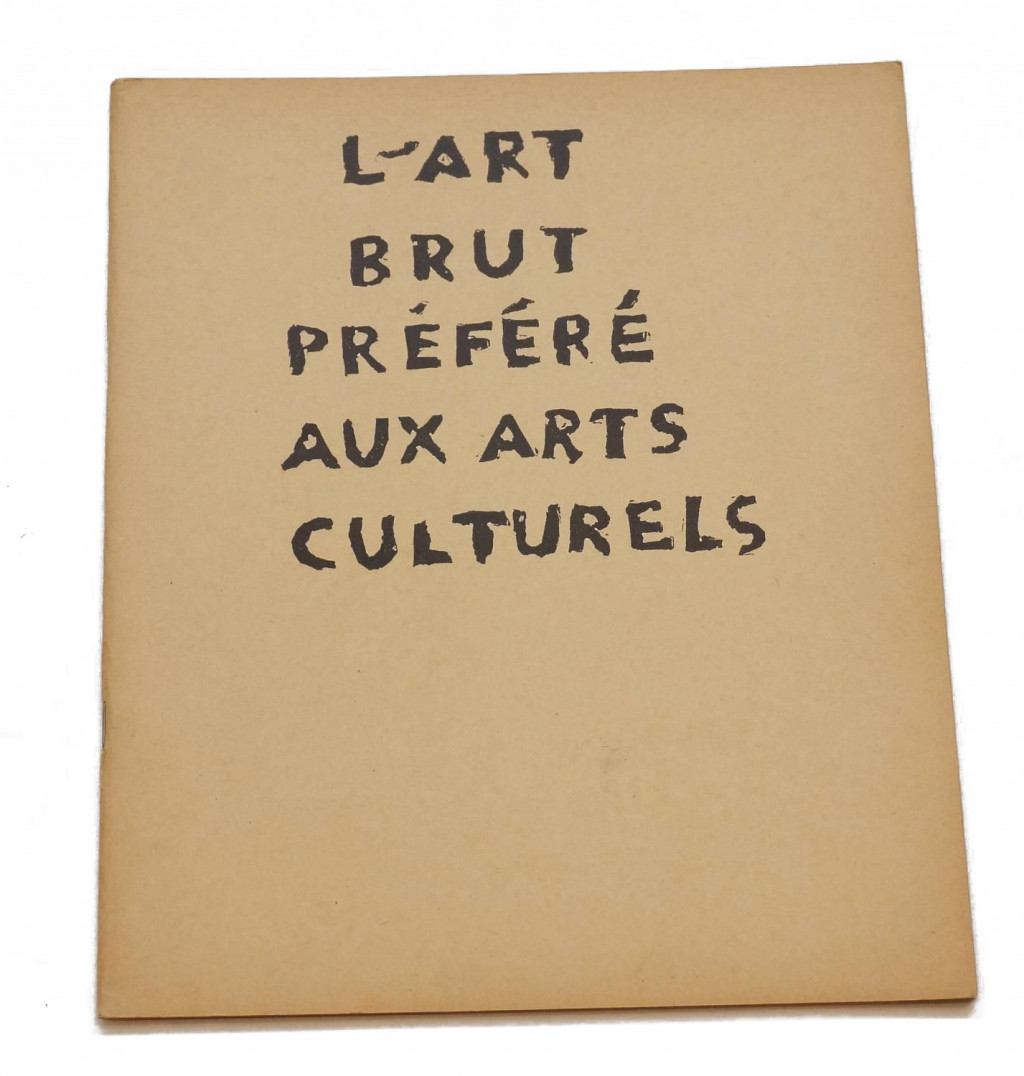 L'ART
BRUT
PRÉFÉRÉ
AUX ARTS
CULTURELS